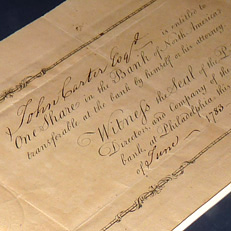 John Carter Esqr. is entitled to
One Share in the Bank of North America
transferable at the bank by himself or his attorney
Witness the Seal of the P
Directors and Company of the
bank, at Philadelphia this
of June 1783